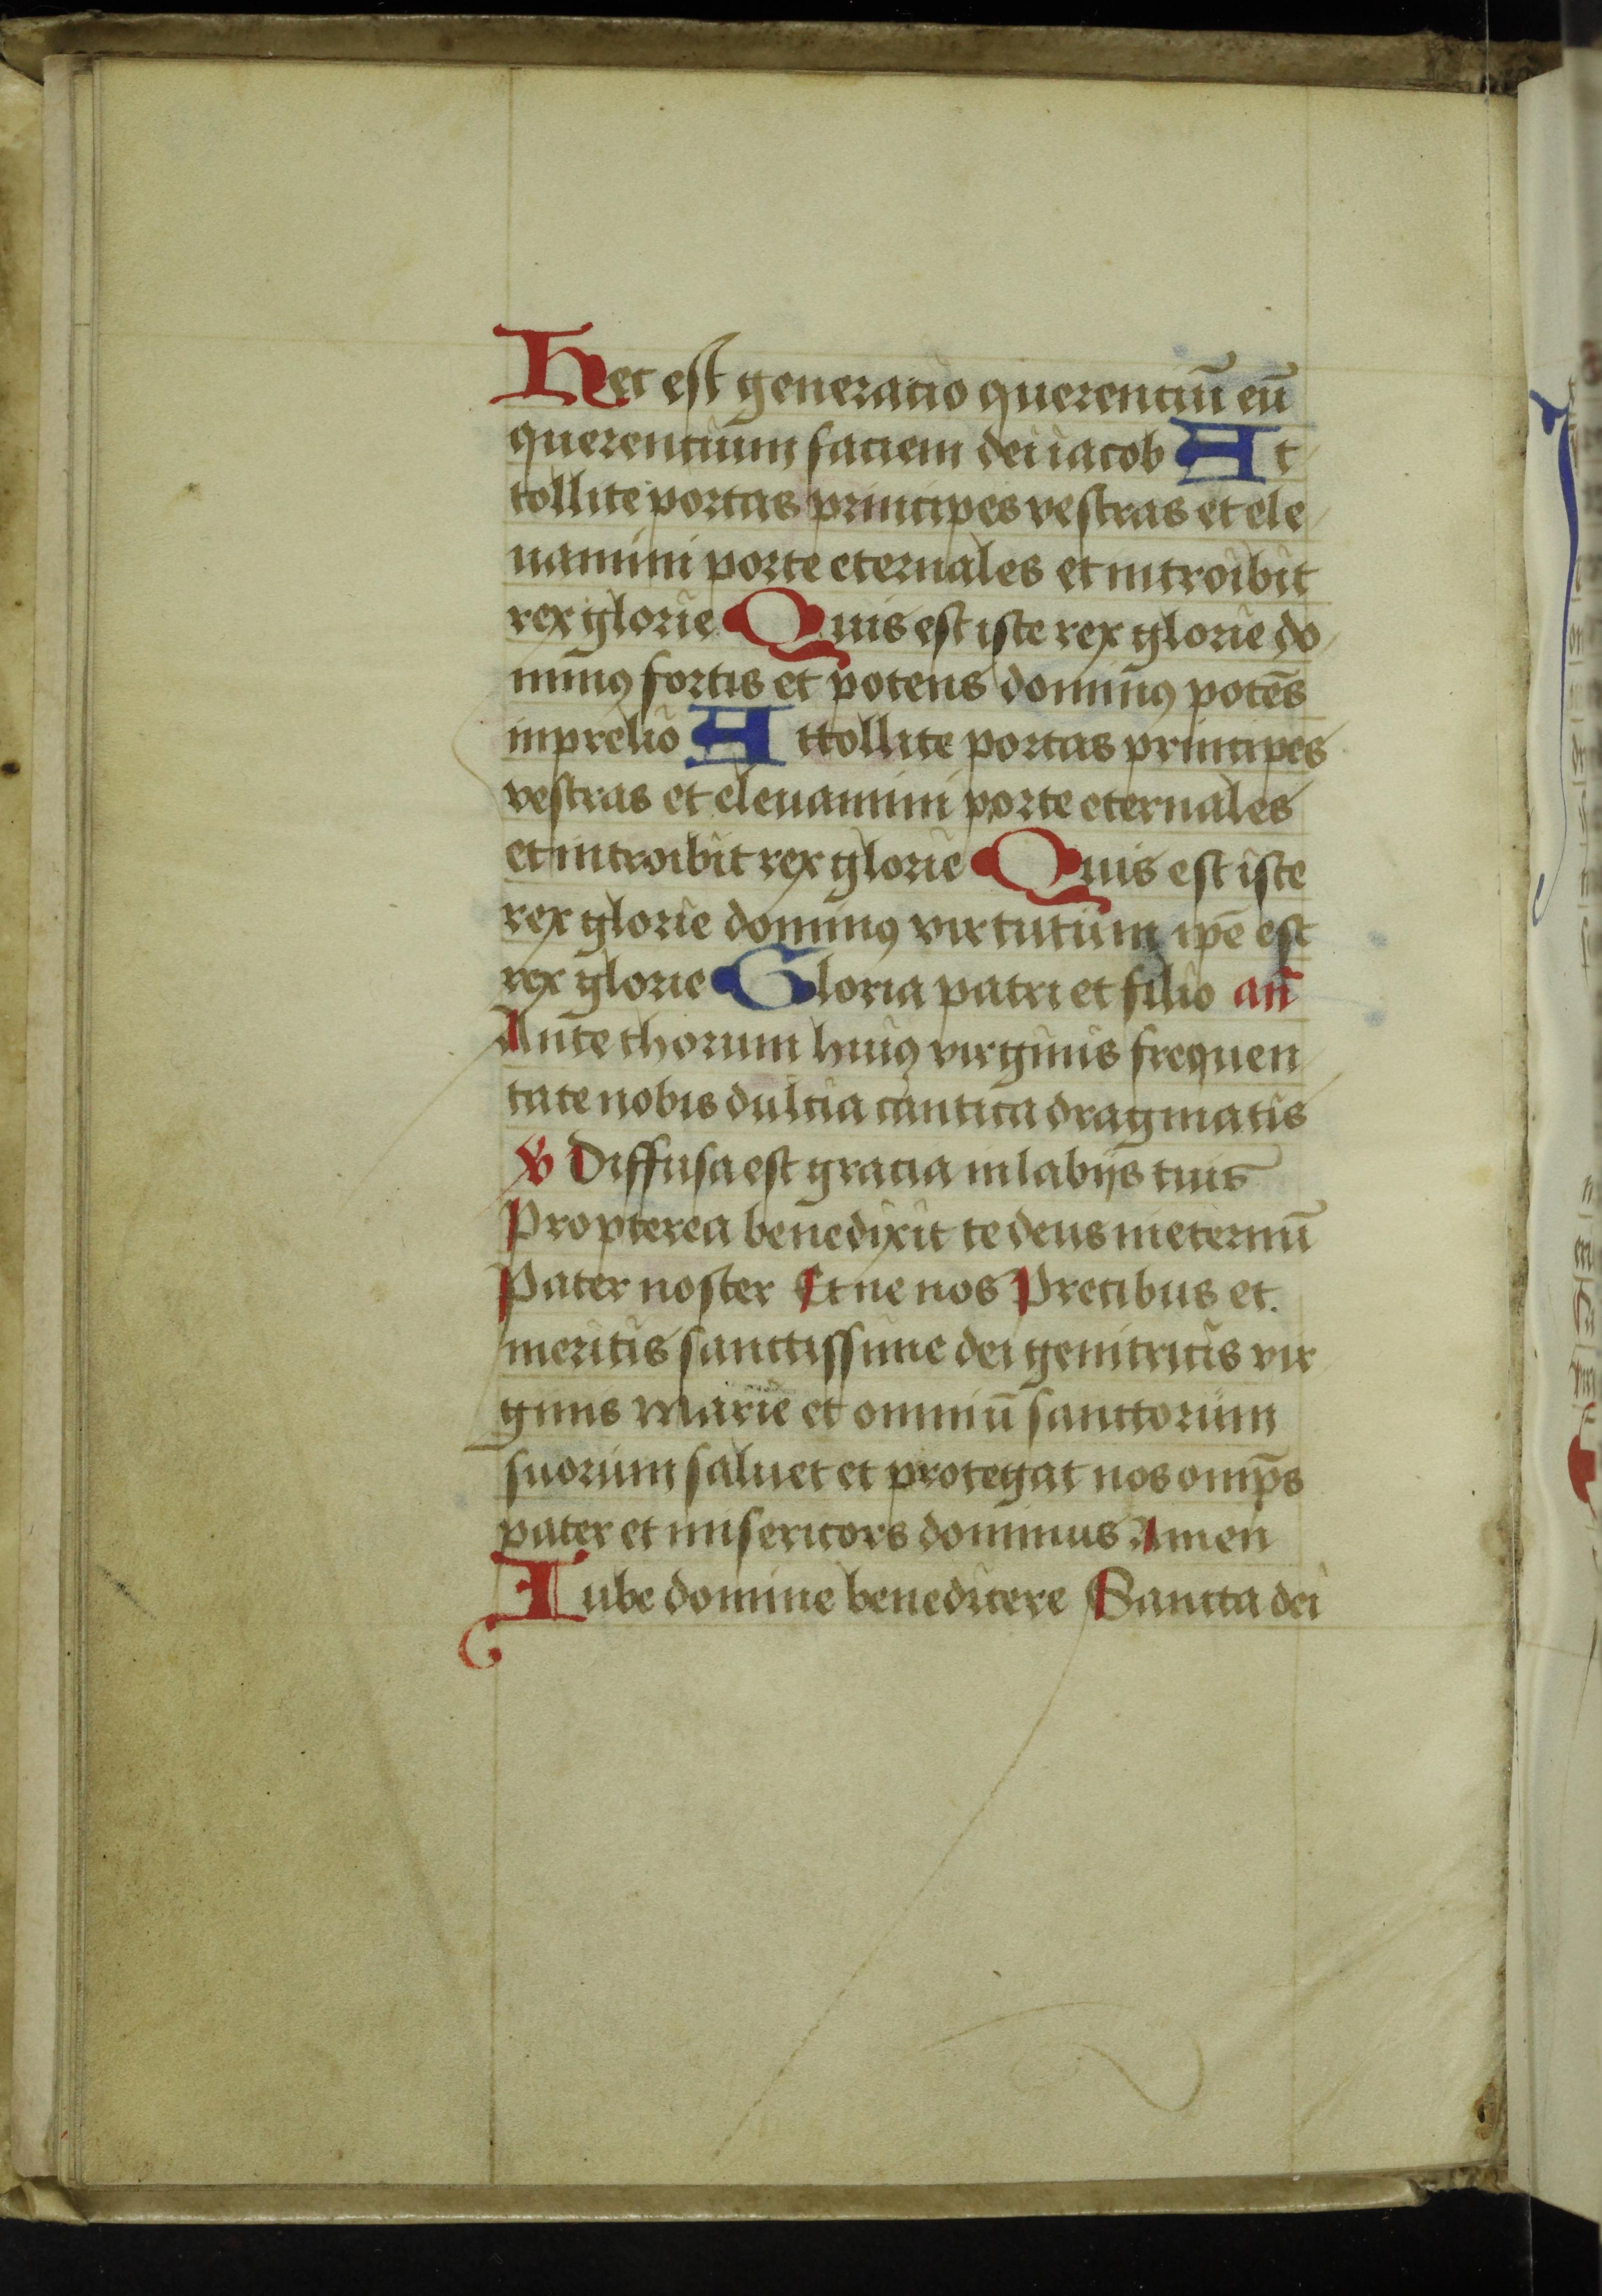 Hec est generacio querenciū eū
querencium faciem dei iacob At
tollite portas principes vestras et ele
uamini porte eternales et introibit
rex glorie Quis est iste rex glorie do
minꝰ fortis et potens dominꝰ potēs
in prelio Attollite portas principes
vestras et eleuamini porte eternales
et introibit rex glorie Quis est iste
rex glorie dominꝰ virtutum ipē est
rex glorie Gloria patri et filio añ
Ante thorum huiꝰ virginis frequen
tate nobis dulcia cantica dragmatis
℣ Diffusa est gracia in labijs tuis
Propterea benedixit te deus in eternū
Pater noster Et ne nos Precibus et
meritis sanctissime dei genitricis vir
ginis marie et omniū sanctorum
suorum saluet et protegat nos omp̄s
pater et misericors dominus Amen
Iube domine benedicere Sancta dei